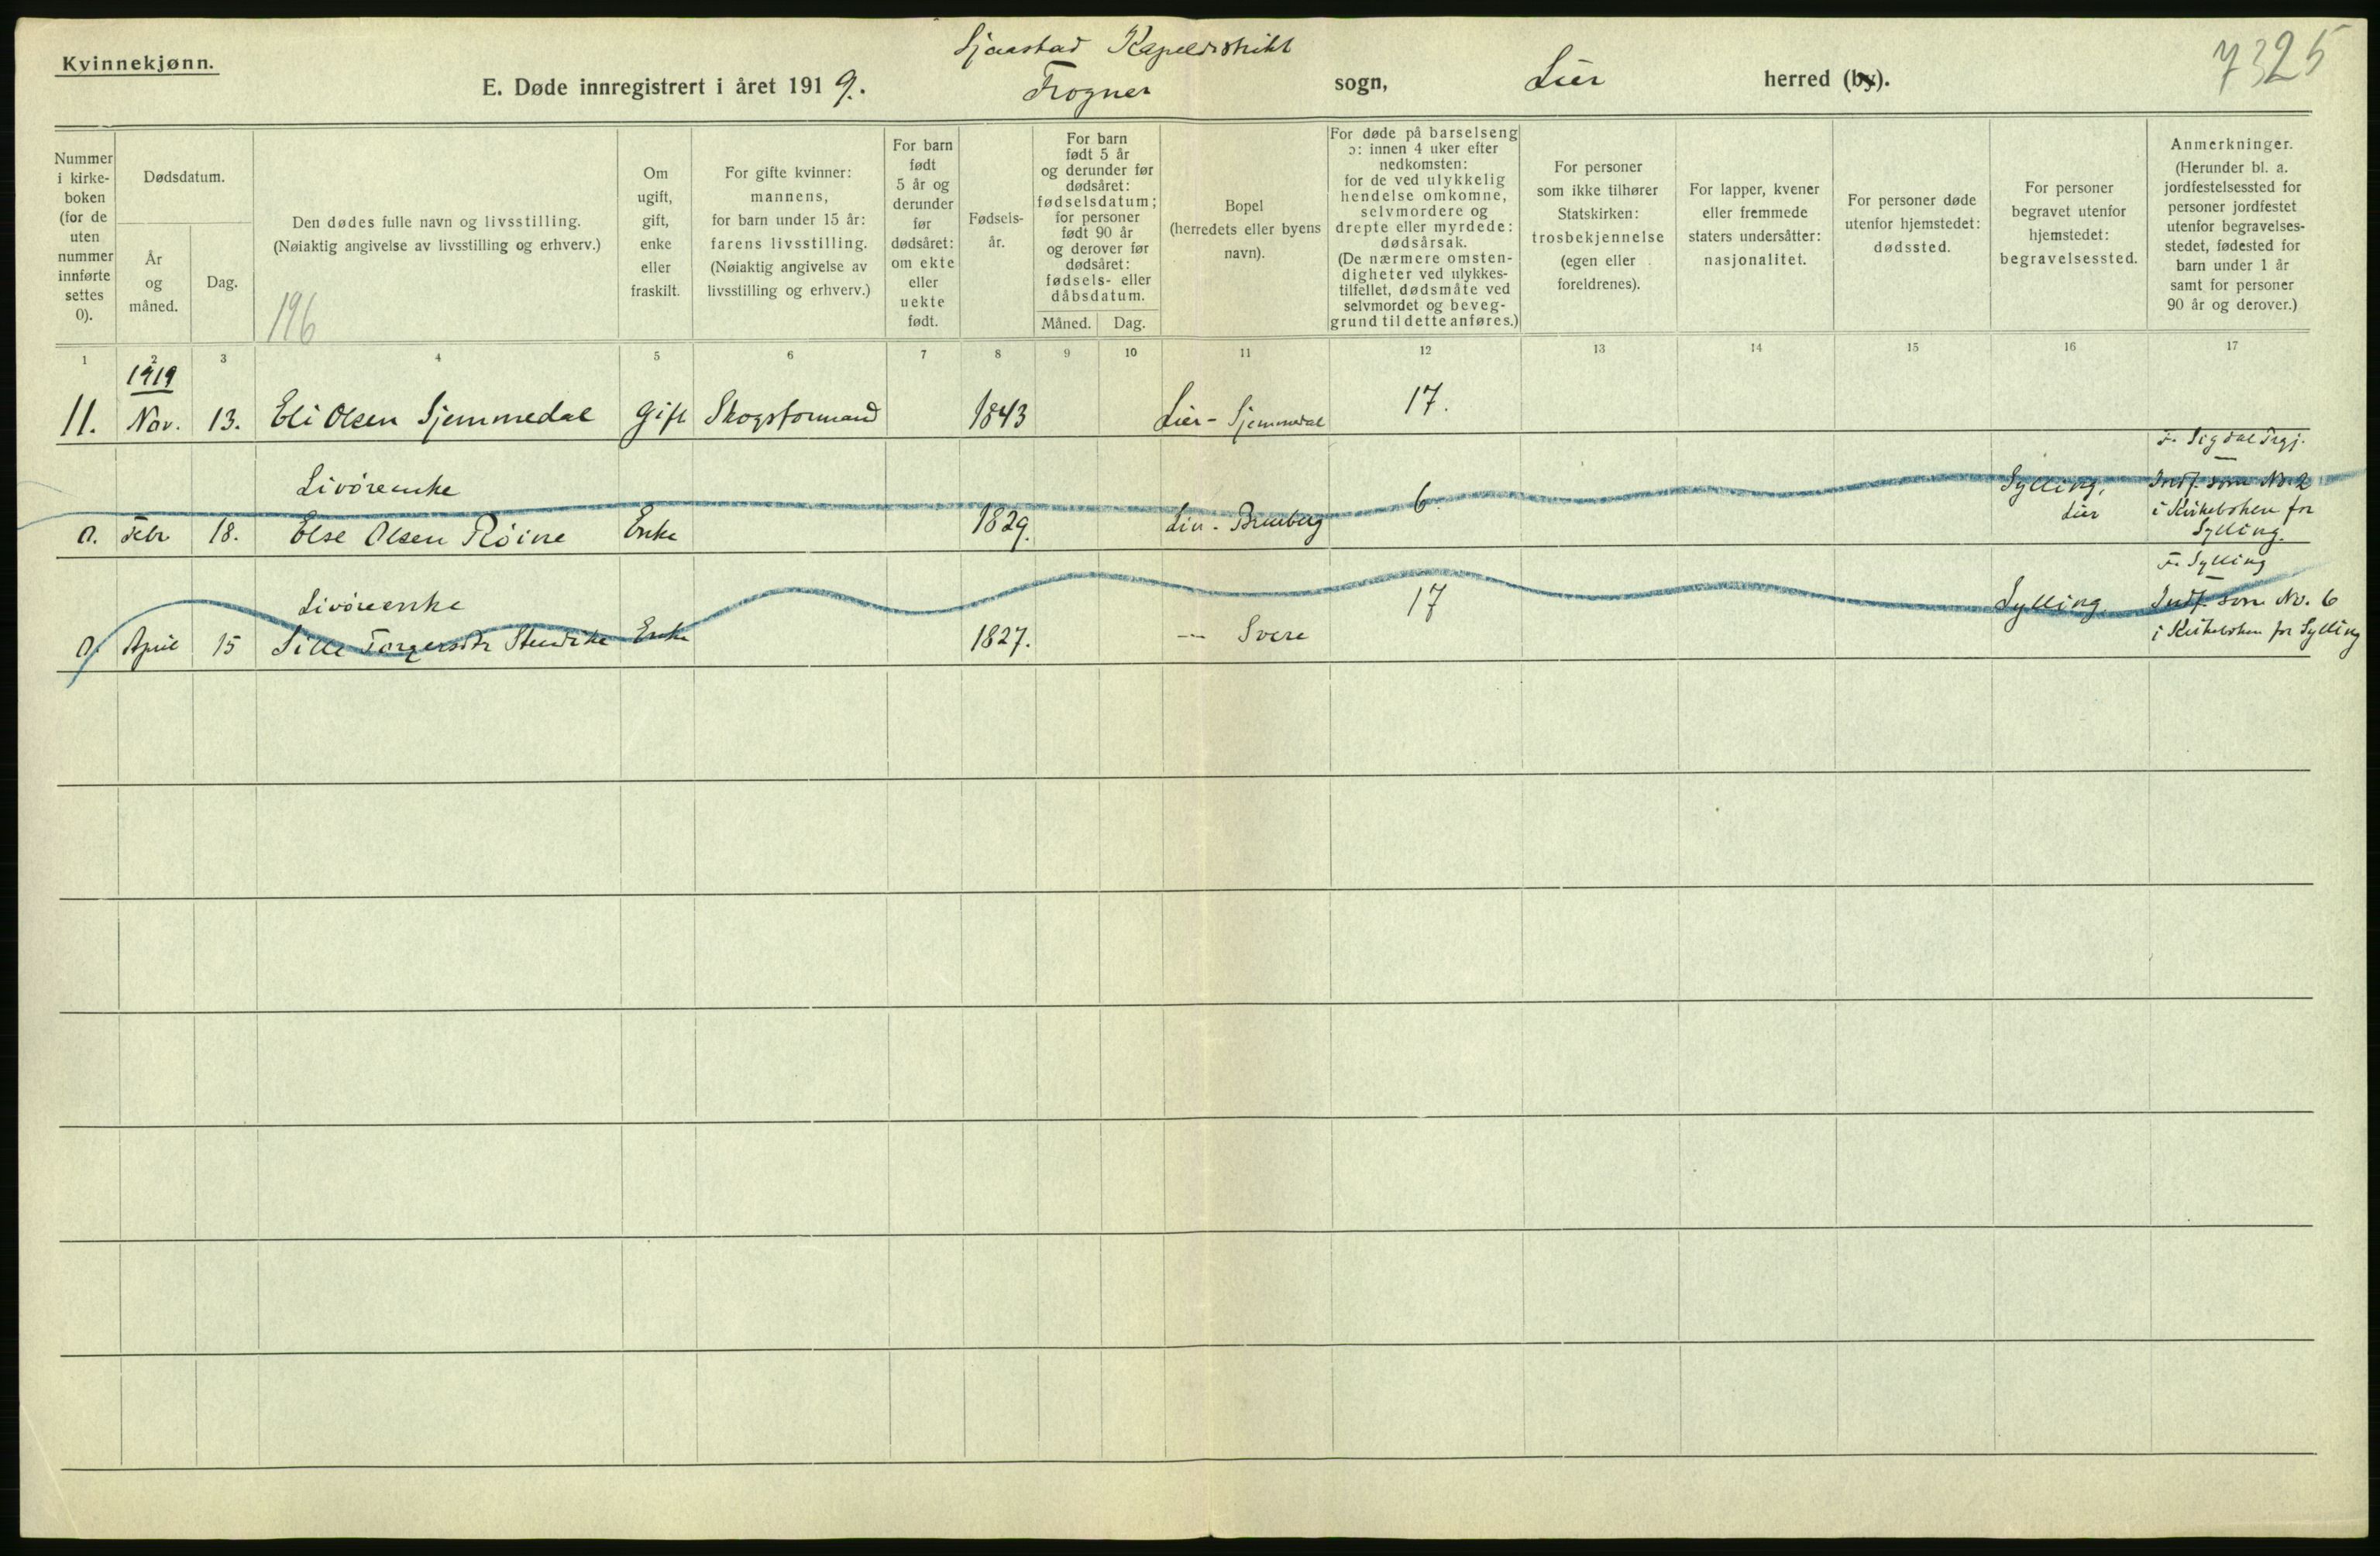 Kvinnekjønn.
Sjaastad Kapeldistrikt
7325
E. Døde innregistrert i året 1919. Frogner sogn, Lier herred (by).
Nummer
i kirke-
boken
(for de
uten
nummer
innførte
settes
0).
Dødsdatum.
År
og
måned.
Dag.
Den dødes fulle navn og livsstilling.
(Nøiaktig angivelse av livsstilling og erhverv.)
196
Om
ugift,
gift,
enke
eller
fraskilt.
For gifte kvinner:
mannens,
for barn under 15 år:
farens livsstilling.
(Nøiaktig angivelse av
livsstilling og erhverv.)
For barn
født
5 år og
derunder
før
dødsåret:
om ekte
eller
uekte
født.
Fødsels-
år.
For barn
født 5 år
og derunder før
dødsåret:
fødselsdatum;
for personer
født 90 år
og derover før
dødsåret:
fødsels- eller
dåbsdatum.
Måned. Dag.
Bopel
(herredets eller byens
navn).
For døde på barselseng
ɔ: innen 4 uker efter
nedkomsten:
for de ved ulykkelig
hendelse omkomne,
selvmordere og
drepte eller myrdede:
dødsårsak.
(De nærmere omsten-
digheter ved ulykkes-
tilfellet, dødsmåte ved
selvmordet og beveg-
grund til dette anføres.)
For personer
som ikke tilhører
Statskirken:
trosbekjennelse
(egen eller
foreldrenes).
For lapper, kvener
eller fremmede
staters undersåtter:
nasjonalitet.
For personer døde
utenfor hjemstedet:
dødssted.
For personer
begravet utenfor
hjemstedet:
begravelsessted.
Anmerkninger.
(Herunder bl. a.
jordfestelsessted for
personer jordfestet
utenfor begravelses-
stedet, fødested for
barn under 1 år
samt for personer
90 år og derover.)
1 2 3 4 5 6 7 8 9 10 11 12 13 14 15 16 17
1919
11. Nov. 13. Eli Olsen Sjemmedal Gift Skogsformand 1843 Lier - Sjemmedal 17.
F. Sigdal Prgj.
Livøreenke
0. Febr 18. Else Olsen Røine Enke 1829. Lier - 6. Sylling, Lier
Indf. som No. 2
i Kirkeboken for
Sylling.
F. Sylling
Livøreenke
0. April 15 Sille Torgersdtr Enke 1827. — Svere 17 Sylling
Indf. som No. 6
i Kirkeboken for Sylling